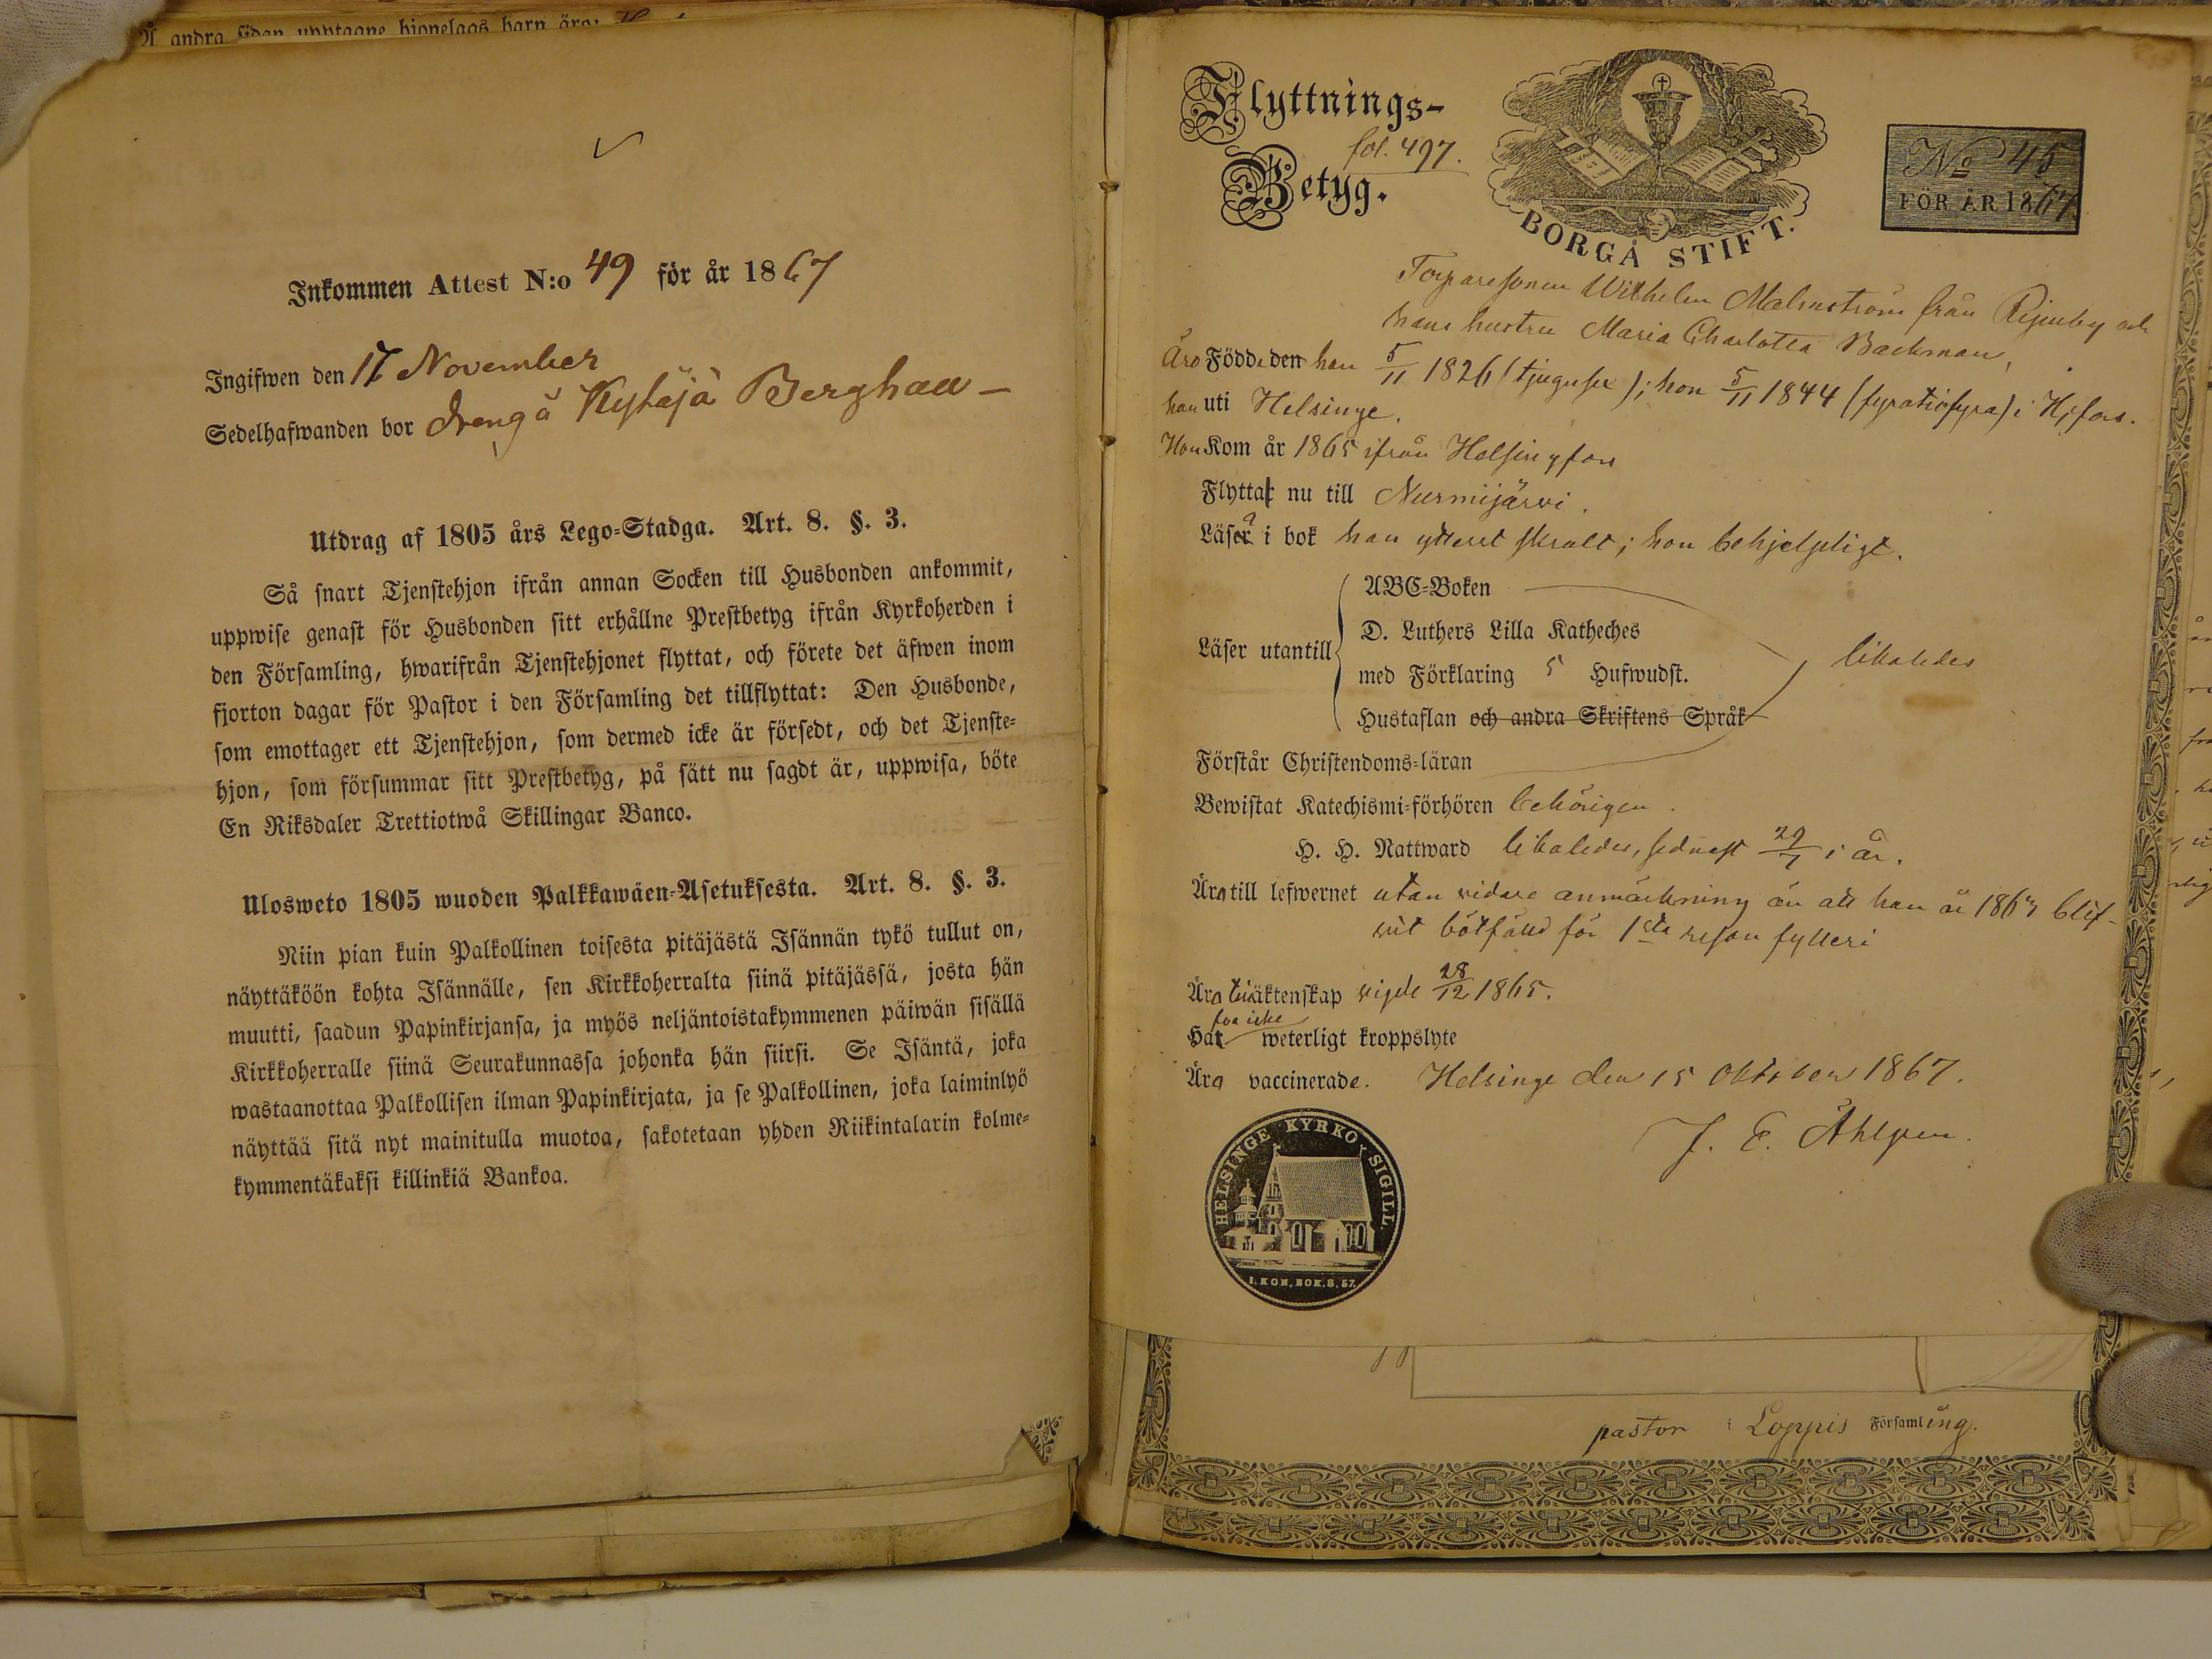 Å andra sidan upptagne hjonelags barn äro:
Inkommen Attest N:o 49 för år 1867
Ingifwen den 17 November
Sedelhafwanden bor dreng å Kytäjä Berghall –
Utdrag af 1805 års Lego-Stadga. Art. 8. §. 3.
Så snart Tjenstehjon ifrån annan Socken till Husbonden ankommit,
uppwise genast för Husbonden sitt erhållne Prestbetyg ifrån Kyrkoherden i
den Församling, hwarifrån Tjenstehjonet flyttat, och förete det äfwen inom
fjorton dagar för Pastor i den Församling det tillflyttat: Den Husbonde,
som emottager ett Tjenstehjon, som dermed icke är försedt, och det Tjenste-
hjon, som försummar sitt Prestbetyg, på sätt nu sagdt är, uppwisa, böte
En Riksdaler Trettiotwå Skillingar Banco.
Ulosweto 1805 wuoden Palkkawäen-Asetuksesta. Art. 8. §. 3.
Niin pian kuin Palkollinen toisesta pitäjästä Isännän tykö tullut on,
näyttäköön kohta Isännälle, sen Kirkkoherralta siinä pitäjässä, josta hän
muutti, saadun Papinkirjansa, ja myös neljäntoistakymmenen päiwän sisällä
Kirkkoherralle siinä Seurakunnassa johonka hän siirsi. Se Isäntä, joka
wastaanottaa Palkollisen ilman Papinkirjata, ja se Palkollinen, joka laiminlyö
näyttää sitä nyt mainitulla muotoa, sakotetaan yhden Riikintalarin kolme-
kymmentäkaksi killinkiä Bankoa.
Flyttnings-
fol. 497.
Betyg.
BORGÅ STIFT.
No 45
FÖR ÅR 1867
Torparesonen Wilhelm Malmström från Rijmby och
hans hustru Maria Charlotta Backman,
Äro Födde den han 5/11 1826 (tjugusex); hon 5/11 1844 (fyratiofyra) i H:fors.
han uti Helsinge.
Hon Kom år 1865 ifrån Helsingfors
Flytta nu till Nurmijärvi.
Läsa i bok han ytterst skralt; hon behjelpligt.
ABC-Boken
Läser utantill
D. Luthers Lilla Katheches
med Förklaring 5 Hufwudst.
likaledes
Hustaflan och andra Skriftens Språk
Förstår Christendoms-läran
Bewistat Katechismi-förhören behörigen.
H. H. Nattward likaledes, sednast 29/7 i år.
Äro till lefwernet utan vidare anmärkning än att han år 1867 blif-
vit bötfälld för 1sta resan fylleri
Äro äktenskap vigde 28/12 1865.
Ha icke weterligt kroppslyte
Äro vaccinerade. Helsinge den 15 Oktober 1867.
J. E. Åhlgren.
HELSINGE KYRKO SIGILL.
I. KON. BOK. 8, 57.
pastor i Loppis Församling.